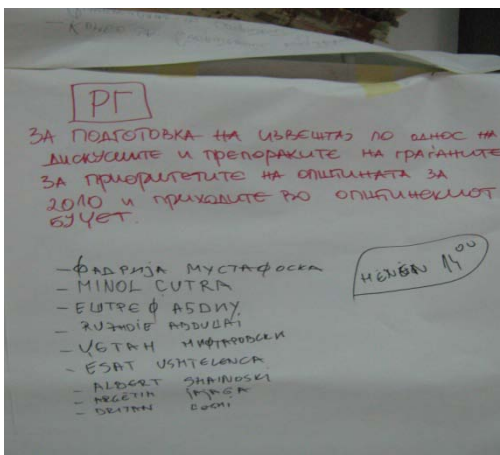 РГ
ЗА ПОДГОТОВКА НА ИЗВЕШТАЈ ПО ОДНОС НА
ДИСКУСИИТЕ И ПРЕПОРАКИТЕ НА ГРАЃАНИТЕ
ЗА ПРИОРИТЕТИТЕ НА ОПШТИНАТА ЗА
2010 И ПРИХОДИТЕ ВО ОПШТИНСКИОТ
БУЏЕТ.
HËNËN 14 00
- ФАДРИЈА МУСТАФОСКА
- MINOL CUTRA
- ЕШТРЕФ АБДИУ
- ABDULAI
- ЏЕТАН МИФТАРОВСКИ
- ESAT USHTELENCA
- ALBERT SHAINOSKI
- ARGETIA
- DRITAN